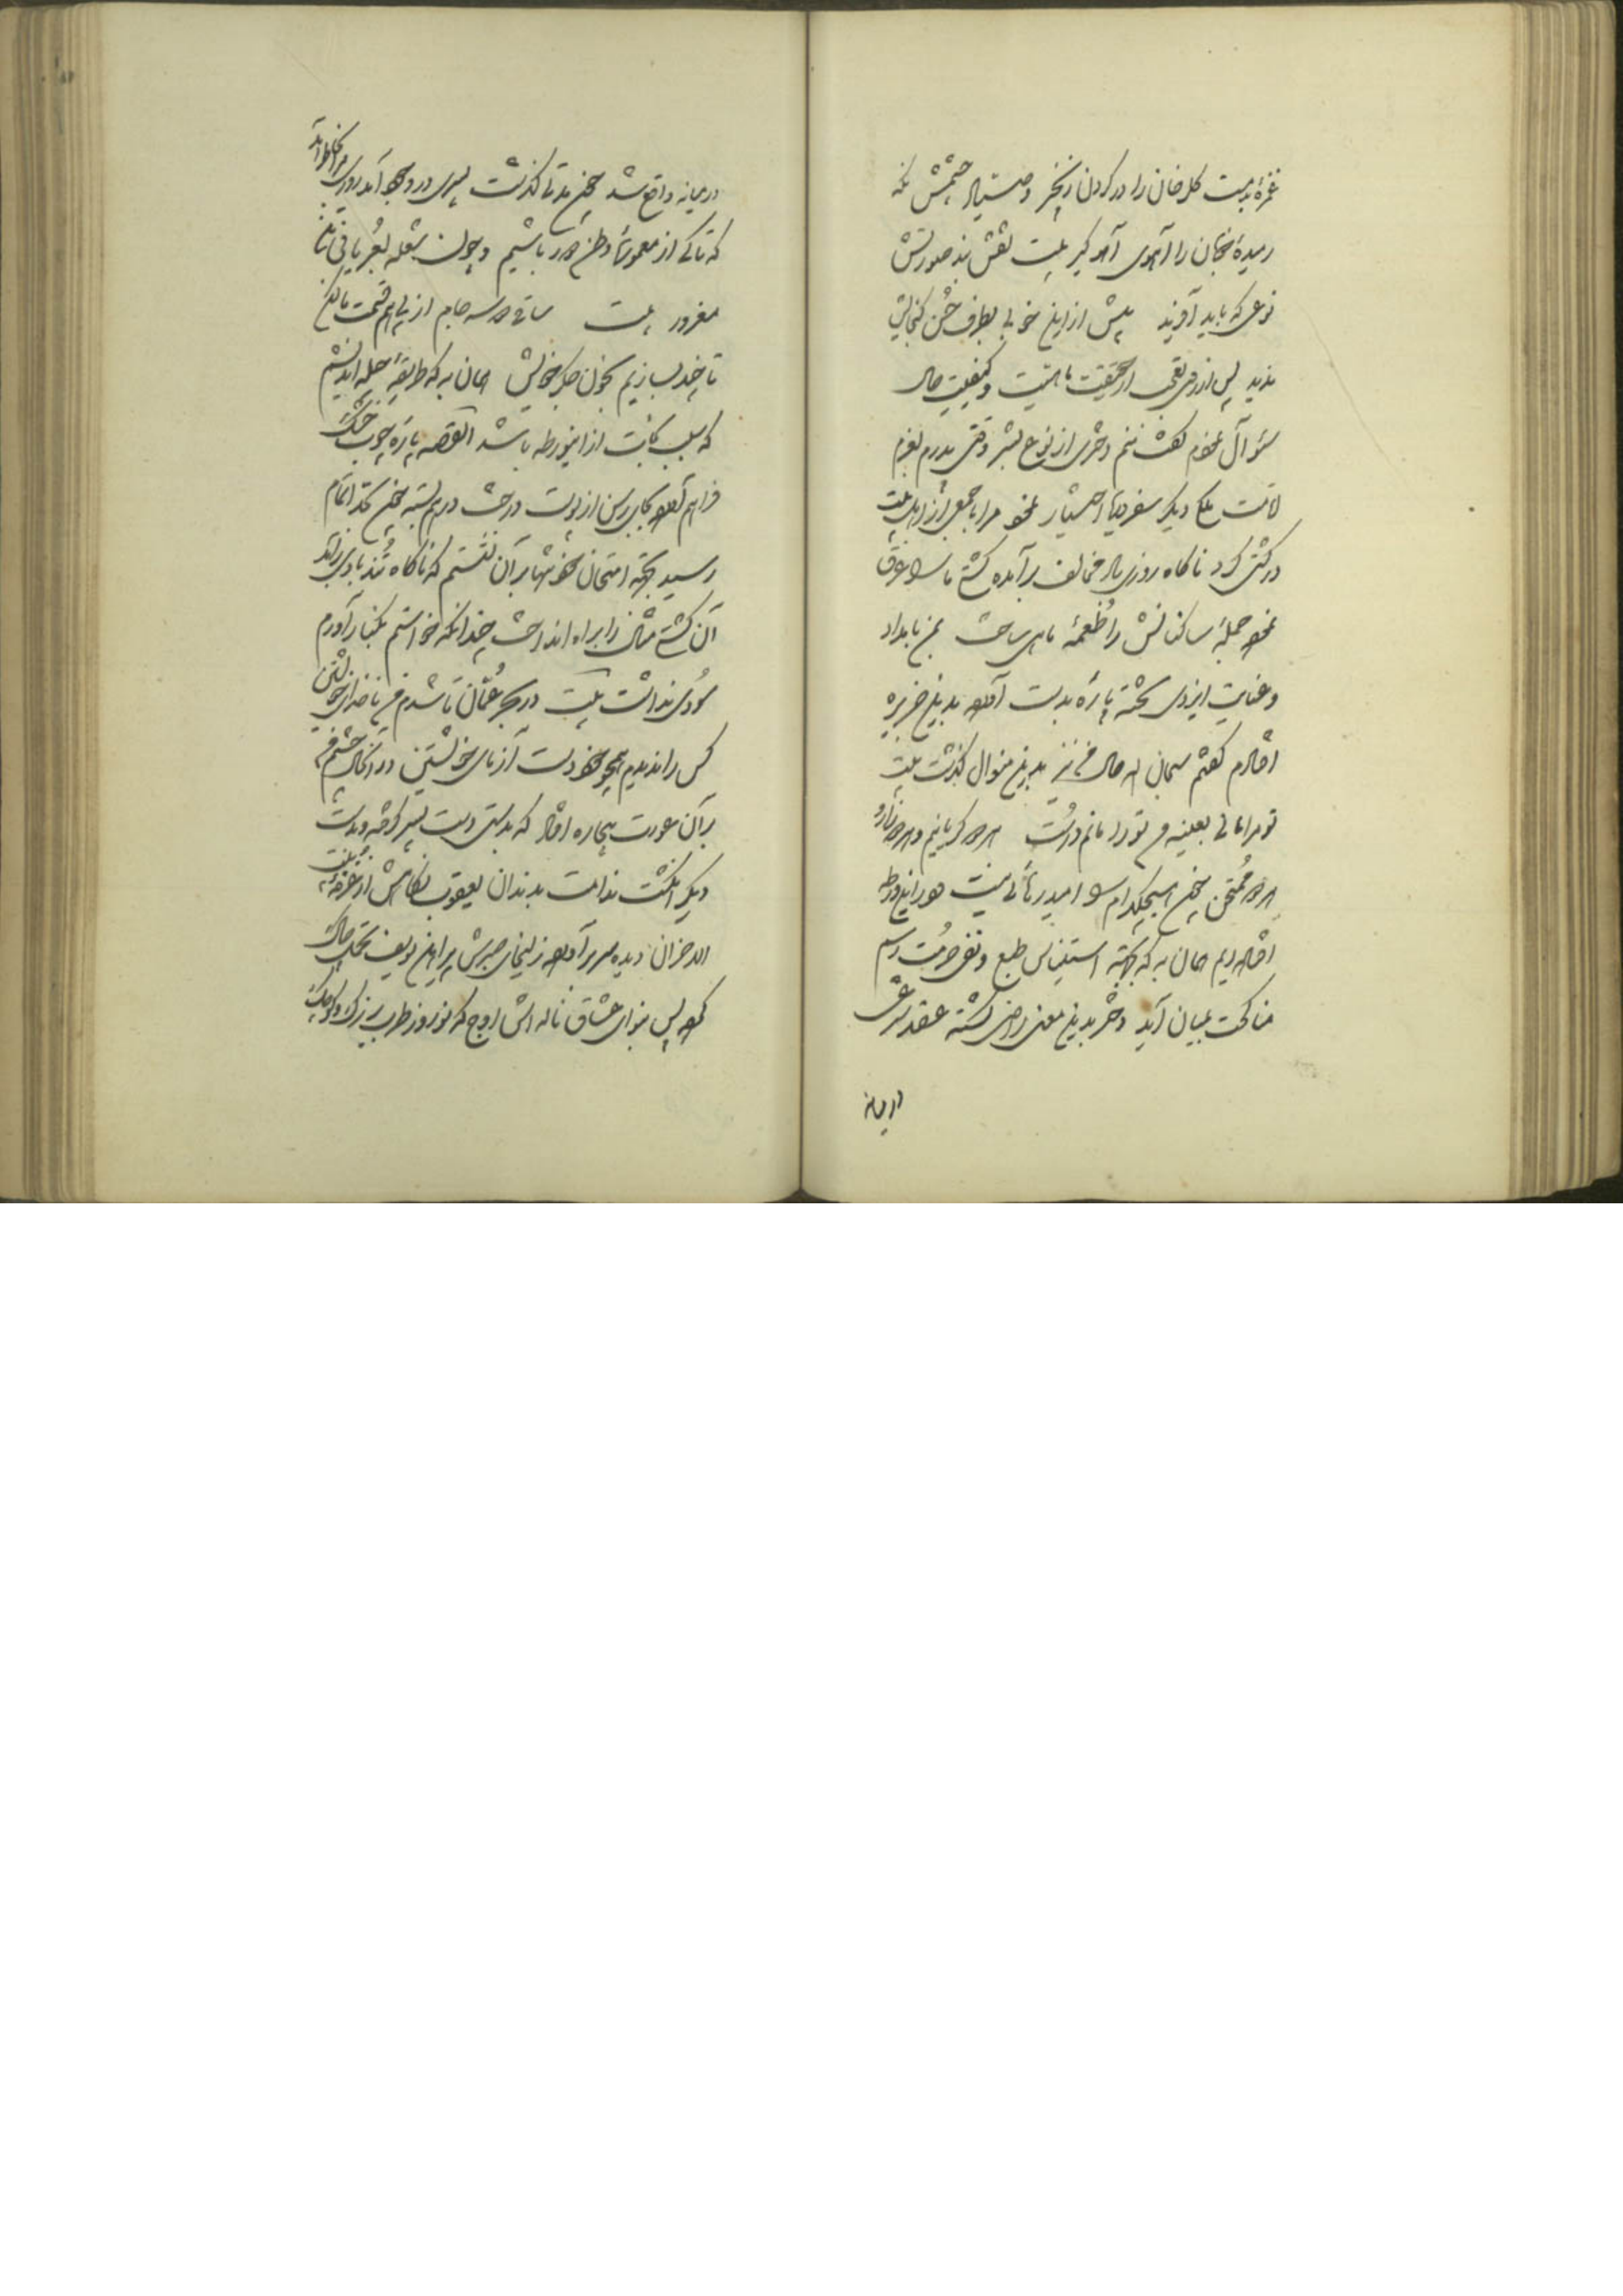 غمزهٔ بدمست گلرخان را در گردن زنجیر و صیاد چشمش نگه
رمیدهٔ ختان را آهوی آهو گیر بیت نقش بند صورتش
نوعی که باید آفرید بیش ازین خوبی بظرف حسن گنجایش
ندید پس از روی تعجب از حقیقت ماهیت و کیفیت حال
سؤال نمودم گفت منم دختری از نوع بشر وقتی پدرم بعزم
ملک دیگر سفر دریا اختیار نمود مرا با جمعی از اهل بیت
در کشتی کرد ناگاه روزی باد مخالف برآمده کشتی ما را غرق
نمود جمله ساکنانش را طعمهٔ ماهی ساخت من بامداد
و عنایت ایزدی تختهٔ پارهٔ بدست آورده بدین جزیره
افتادم گفتم سبحان الله حال من نیز بدین منوال گذشت بیت
تو مرا مانی بعینه من تو را مانم درست هر دو گریانیم و هر دو
هر دو ممتحن چون هیچکدام را امید رهائی نیست و درین ورطه
افتاده‌ایم همان به که بجهة استیناس طبع و نفی حرمت رسم
مناکحت بمیان آید دختر بدین معنی راضی گشته عقد شرعی
درمیانه
درمیانه واقع شد چون مدتی گذشت پسری در وجود آمد روزی مرا بخاطر آمد
که تا کی از معموره و وطن دور باشیم و چون شعله بعریانی
مغرور بیت ساقی دو سه جام از پی هم قسمت ما کن
تا چند بسازیم بخون جگر خویش همان به که طریقهٔ حیله اندیشم
که سبب نجات ازین ورطه باشد القصه پارهٔ چوب خشک
فراهم آورده بجای رسن از پوست درخت درهم بسته چون بحد اتمام
رسید بجهة امتحان خود تنها بر آن نشستم که ناگاه تند بادی برآمد
آن کشتی مثال را براه انداخت چندانکه خواستم بکنار آورم
سودی نداشت بیت در بحر عمان تا شدم من ناخدای خویشتن
کس را ندیدم همچو خود دست آزمای خویشتن در آنحال چشمم
بر آن عورت بیچاره افتاد که بدستی دست پسر گرفته و بدست
دیگر انگشت ندامت بدندان یعقوب نگاهش از غرفهٔ بیت
الاحزان دیده سر برآورده زلیخای صبرش پیراهن یوسف تحمل چاک
نموده پس بنوای عشاق ناله‌اش اوج که نوروز طرب بزرگ و کوچک